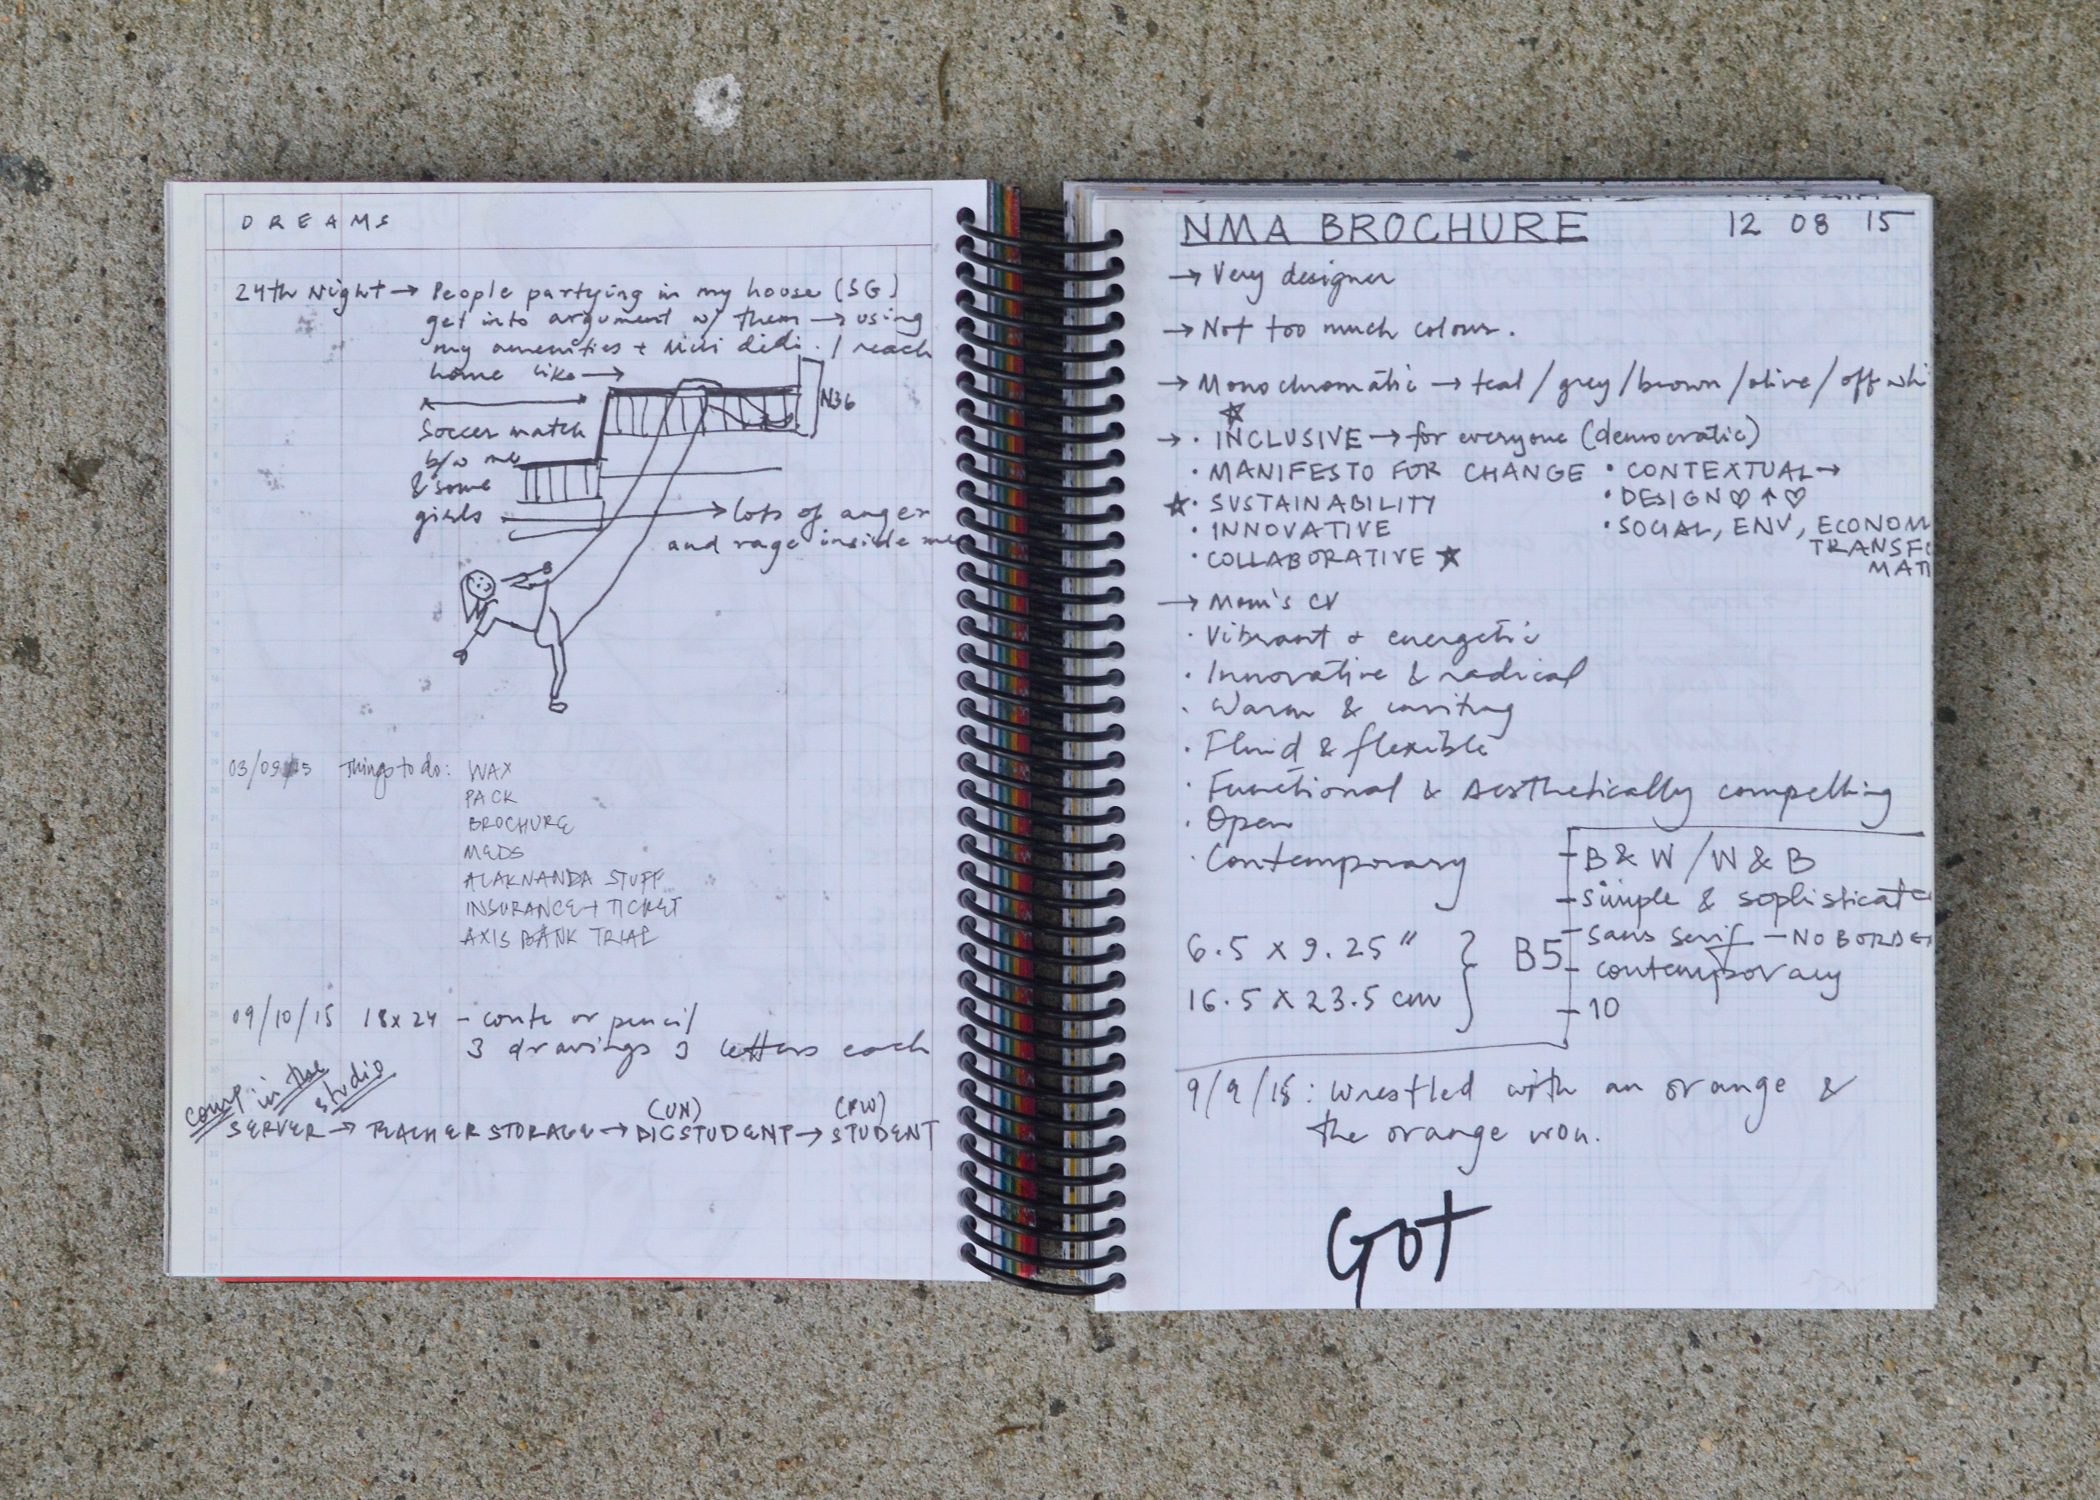 DREAMS
24th Night → People partying in my house (SG)
get into argument w/ them → using
my amenities + didi. I reach
home like →
N36
Soccer match
b/w me
& some
girls
→ lots of anger
and rage inside me
03/09/15 Things to do: WAX
PACK
BROCHURE
MEDS
ALAKNANDA STUFF
INSURANCE + TICKET
AXIS BANK TRIAL
09/10/15 18x24 - conte or pencil
3 drawings 3 letters each
comp in the
studio
(UN) (PW)
SERVER → TEACHER STORAGE → DIGSTUDENT → STUDENT
NMA BROCHURE 12 08 15
→ Very designer
→ Not too much colour.
→ Monochromatic → teal/grey/brown/olive/off whi
→ · INCLUSIVE → for everyone (democratic)
· MANIFESTO FOR CHANGE
★ · SUSTAINABILITY
· INNOVATIVE
· COLLABORATIVE ★
· CONTEXTUAL →
· DESIGN ♡ ↑ ♡
· SOCIAL, ENV, ECONOM
TRANSFO
MATI
→ Mom's CV
· Vibrant + energetic
· Innovative & radical
· Warm & inviting
· Fluid & flexible
· Functional & Aesthetically compelling
· Open
· Contemporary
6.5 x 9.25"
16.5 x 23.5 cm } B5
- B & W / W & B
- simple & sophisticate
- sans serif - NO BORDE
- contemporary
- 10
9/9/15: Wrestled with an orange &
the orange won.
GOT